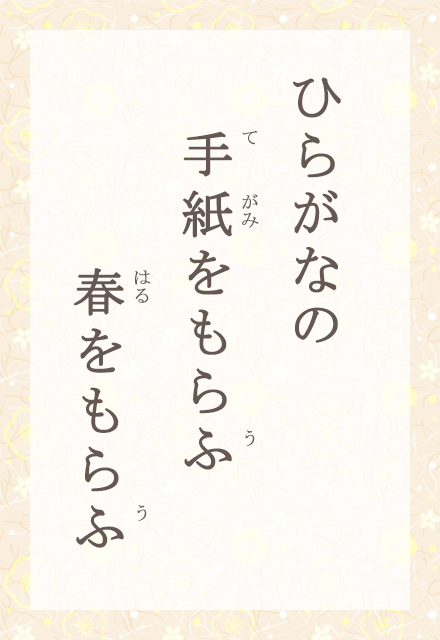 ひらがなの
手紙をもらふ
てがみ
う
春をもらふ
はる
う